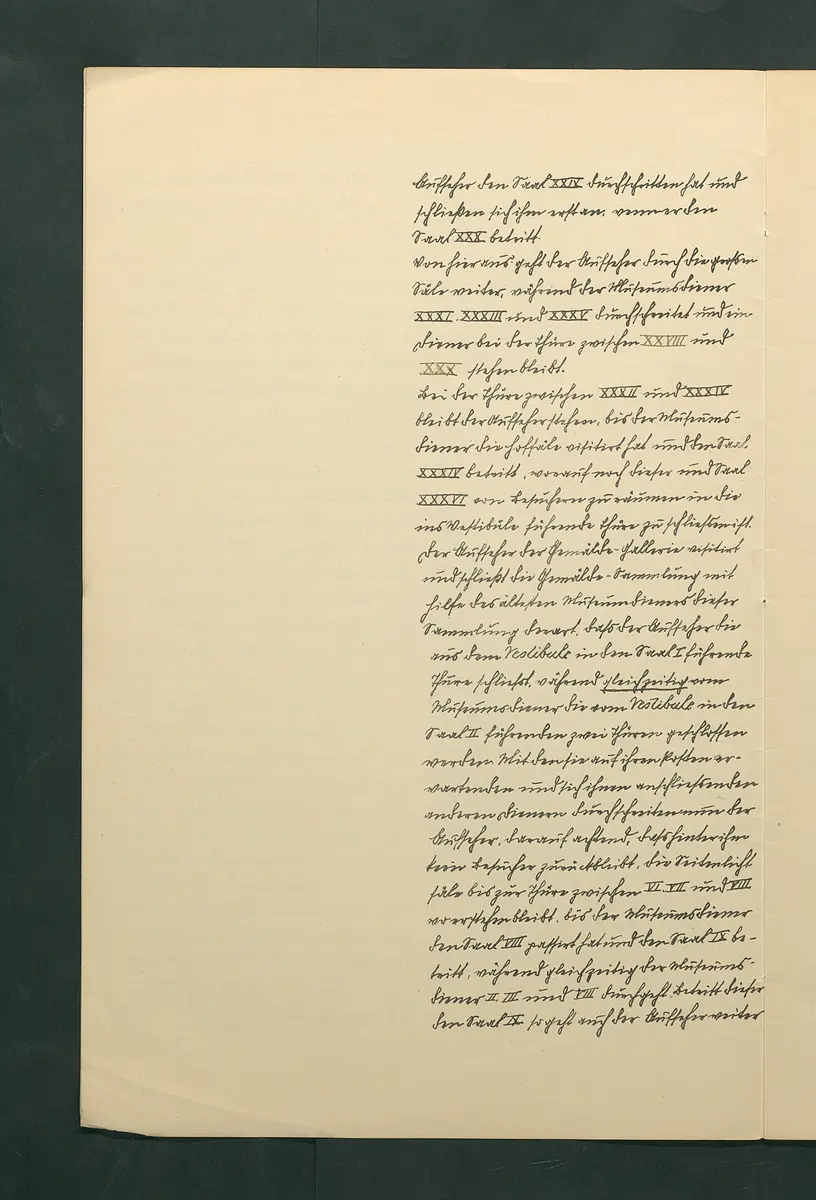 Aufseher den Saal XXIX durchschritten hat und
schließen sich ihm erst an, wenn er den
Saal XXX betritt.
Von hier aus geht der Aufseher durch die großen
Säle weiter, während der Museumsdiener
XXXI. XXXIII und XXXV durchschreitet und ein
Diener bei der Thüre zwischen XXVIII und
XXX stehen bleibt.
Bei der Thüre zwischen XXXII und XXXIV
bleibt der Aufseher stehen, bis der Museums-
diener die Hofsäle visitirt hat und den Saal
XXXIV betritt, worauf noch dieser und Saal
XXXVI von Besuchern zu räumen in die
ins Vestibüle führende Thüre zu schliessen ist.
Der Aufseher der Gemälde-Gallerie visitirt
und schließt die Gemälde-Sammlung mit
Hilfe des ältesten Museumdieners dieser
Sammlung derart, dass der Aufseher die
aus dem Vestibule in den Saal I führende
Thüre schliesst, während gleichzeitig vom
Museumsdiener die vom Vestibule in den
Saal II führenden zwei Thüren geschlossen
werden. Mit den sie auf ihren Posten er-
wartenden und sich ihnen anschliessenden
anderen Dienern durchschreiten nun der
Aufseher, darauf achtend, dass hinter ihm
kein Besucher zurückbleibt, die Seitenlicht
säle bis zur Thüre zwischen VI. VII und VIII
wo er stehen bleibt, bis der Museumsdiener
den Saal VIII passirt hat und den Saal IX be-
tritt, während gleichzeitig der Museums-
diener II. III und VIII durchgeht. Betritt dieser
den Saal IX so geht auch der Aufseher weiter